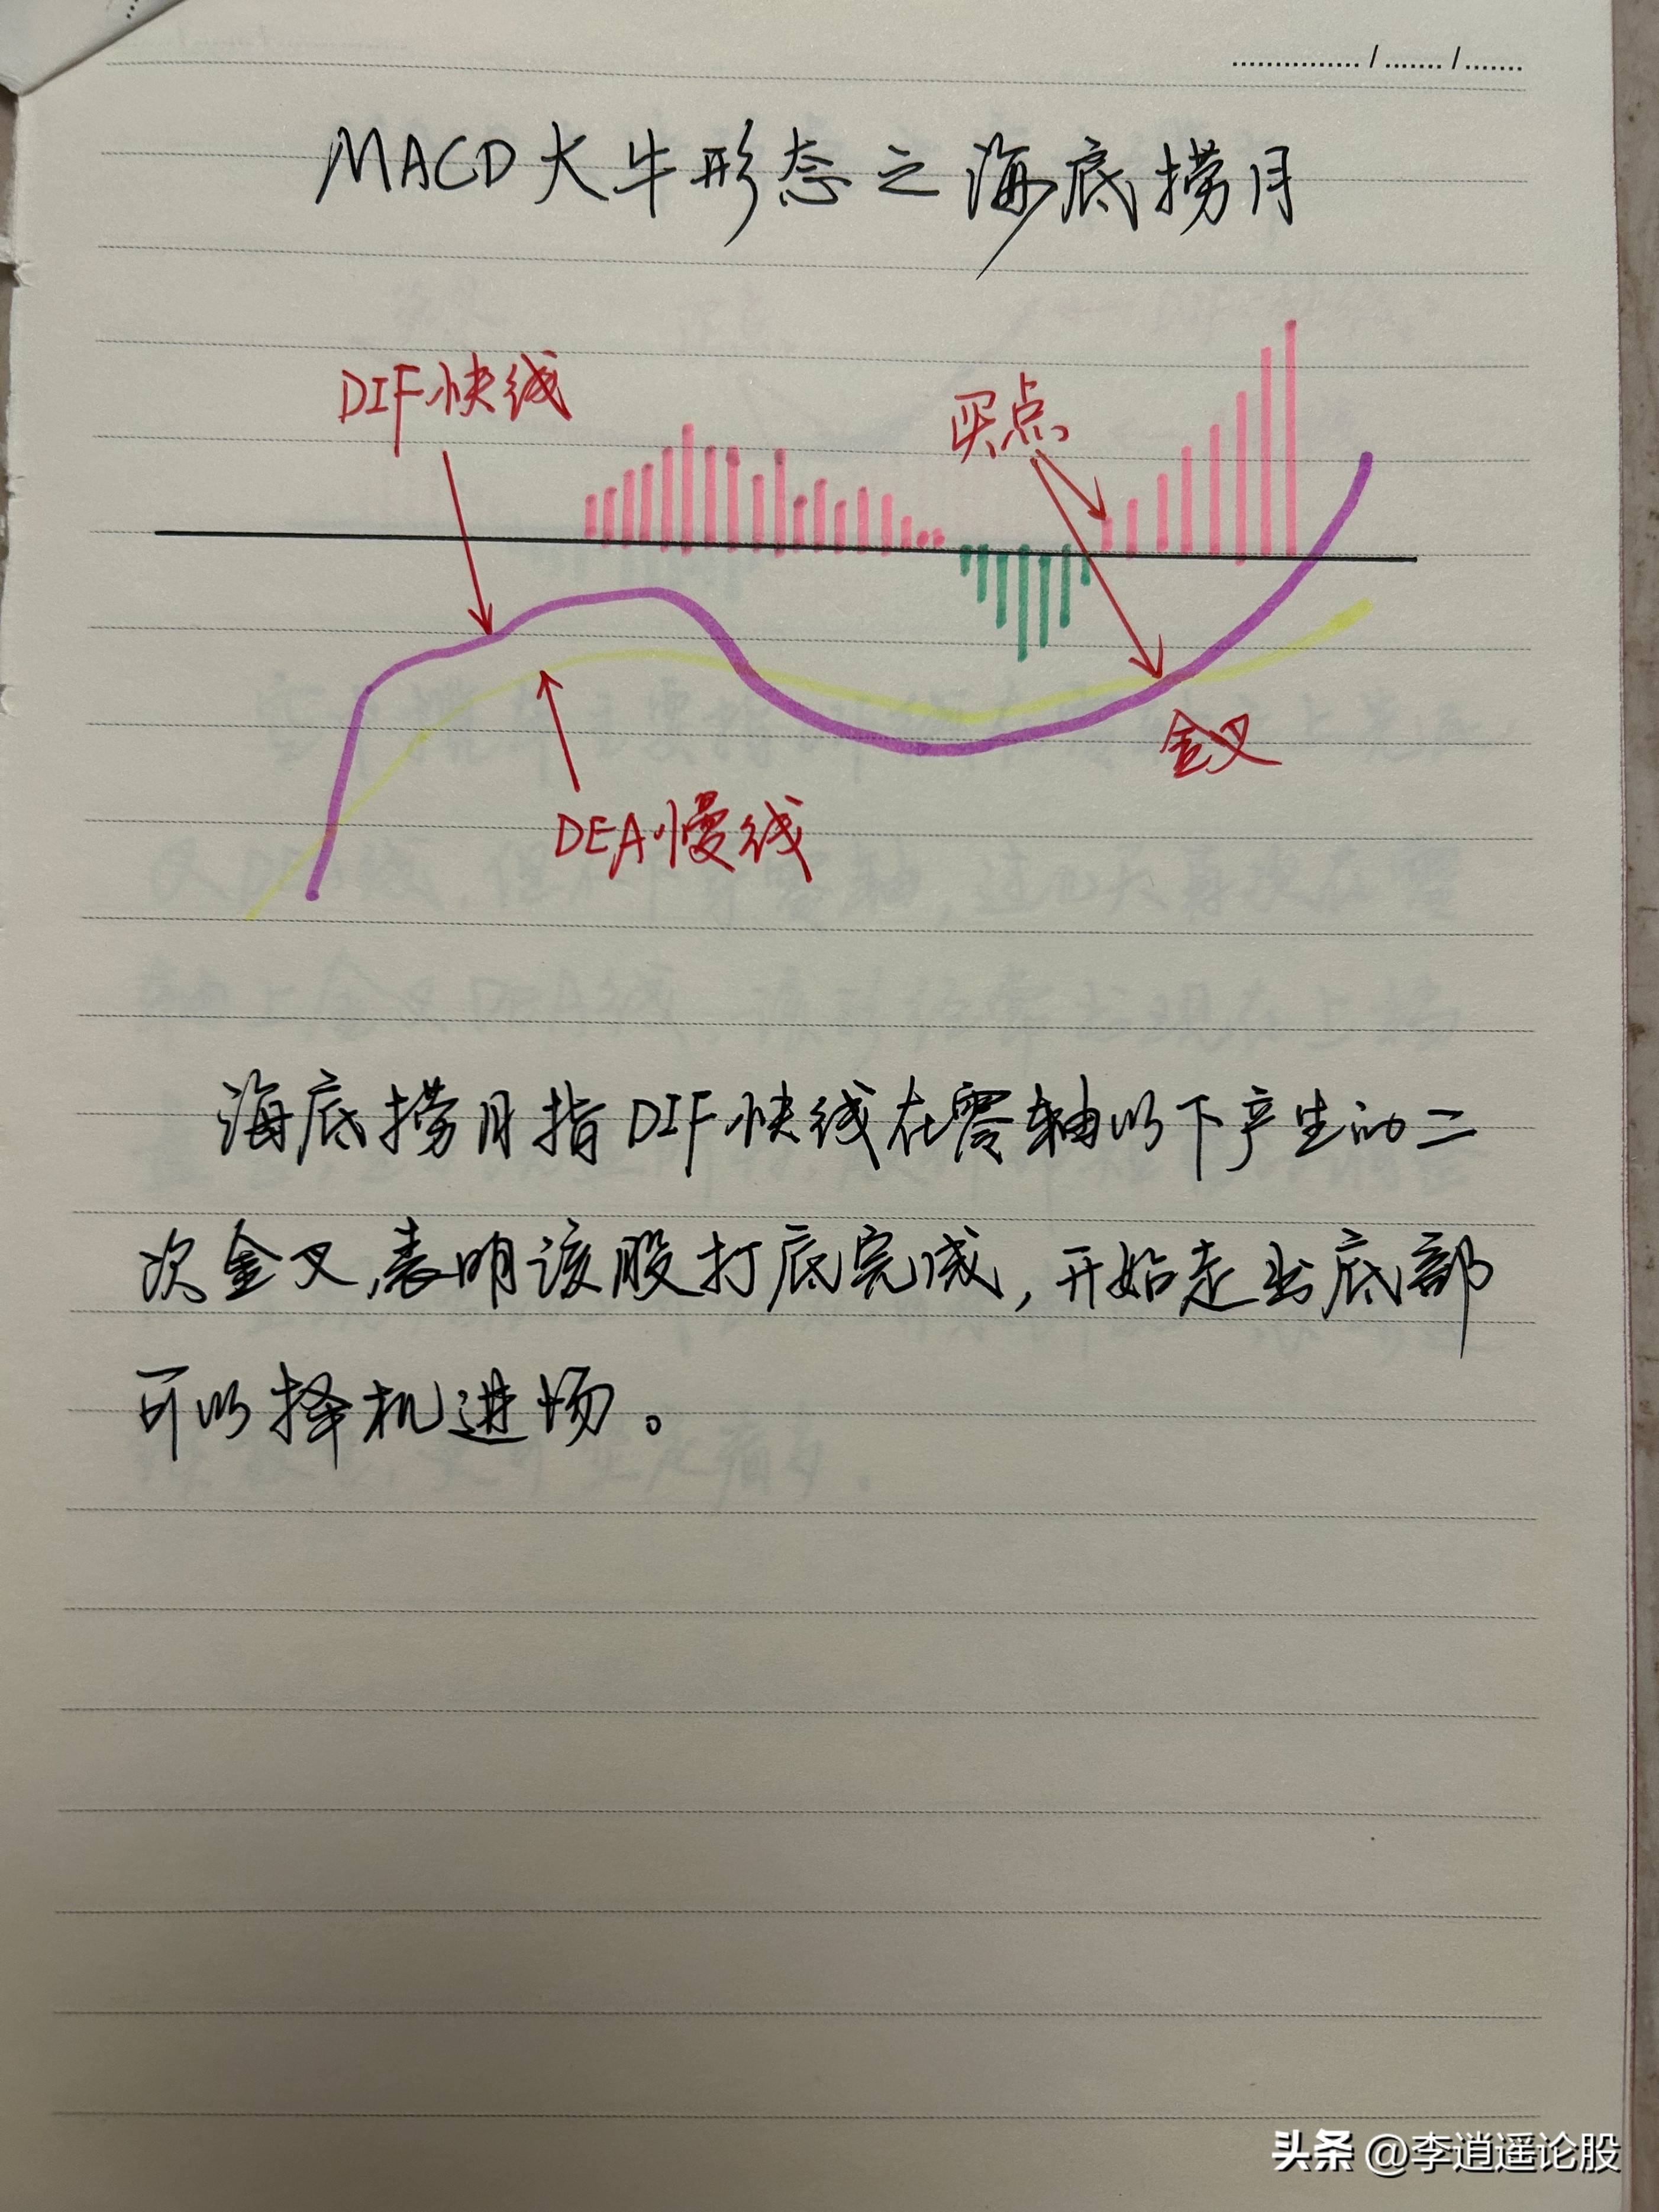 MACD大牛形态之海底捞月
DIF快线
买点
金叉
DEA慢线
海底捞月指DIF快线在零轴以下产生的二
次金叉,表明该股打底完成,开始走出底部
可以择机进场。
头条 @李逍遥论股